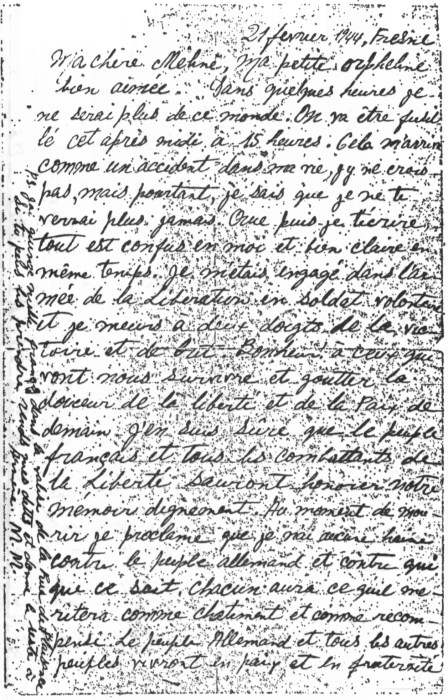 21 fevrier 1944, Fresne
Ma chere Méline, ma petite orpheline
bien aimée. Dans quelques heures je
ne serai plus de ce monde. On va être fusil
lé cet après midi à 15 heures. Cela m'arrive
comme un accident dans ma vie, j'y ne crois
pas, mais pourtant, je sais que je ne te
verrai plus jamais. Que puis-je t'ecrire,
tout est confus en moi et bien claire en
même temps. Je m'etais engagé dans l'ar
mée de la Liberation en soldat volontaire
et je meurs a deux doigts de la vic
toire et de but. Bonheur à ceux qui
vont nous survivre et goutter la
douceur de la liberté et de la Paix de
demain. J'en suis sure que le peuple
français et tous les combattants de
la Liberté sauront honorer notre
mémoir dignement. Au moment de mou
rir je proclame que je n'ai aucune haine
contre le peuple allemand et contre qui
que ce soit. Chacun aura ce qu'il me
ritera comme chatiment et comme recom
pense. Le peuple Allemand et tous les autres
peuples vivront en paix et en fraternité
PS. J'ai quinze mille francs dans la valise de la rue de Plaisance
Si tu peus les prendre rends mes dettes et donne le reste à
M. M.